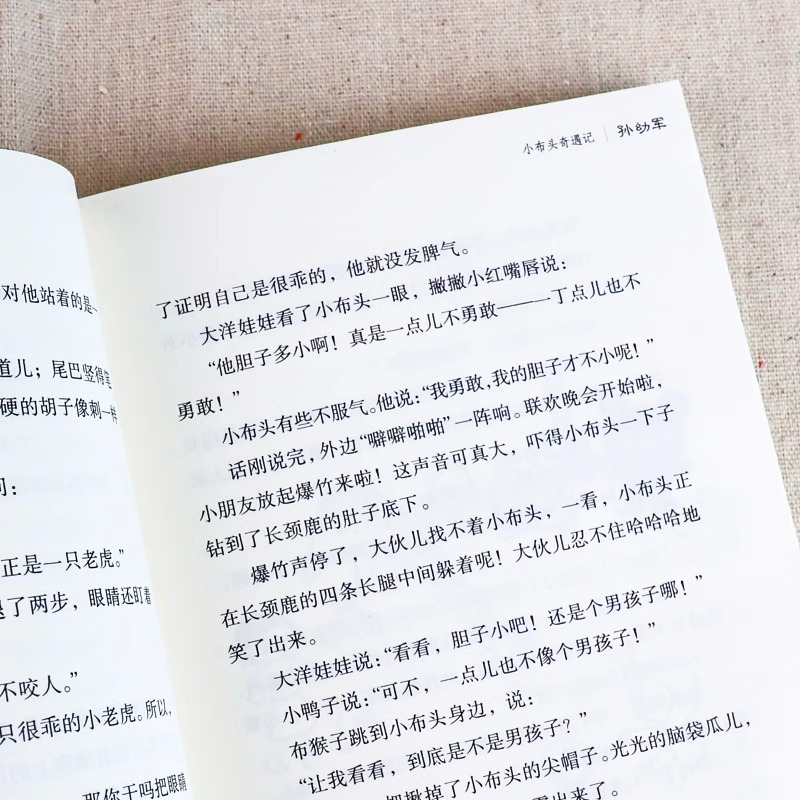 对他站着的是
道儿；尾巴竖得笔
硬的胡子像刺一样
问：
正是一只老虎。”
退了两步，眼睛还盯着
不咬人。”
只很乖的小老虎。所以，
那你干吗把眼睛
小布头奇遇记 孙幼军
了证明自己是很乖的，他就没发脾气。
大洋娃娃看了小布头一眼，撇撇小红嘴唇说：
“他胆子多小啊！真是一点儿不勇敢——一丁点儿也不
勇敢！”
小布头有些不服气。他说：“我勇敢，我的胆子才不小呢！”
话刚说完，外边“噼噼啪啪”一阵响。联欢晚会开始啦，
小朋友放起爆竹来啦！这声音可真大，吓得小布头一下子
钻到了长颈鹿的肚子底下。
爆竹声停了，大伙儿找不着小布头，一看，小布头正
在长颈鹿的四条长腿中间躲着呢！大伙儿忍不住哈哈哈地
笑了出来。
大洋娃娃说：“看看，胆子小吧！还是个男孩子哪！”
小鸭子说：“可不，一点儿也不像个男孩子！”
布猴子跳到小布头身边，说：
“让我看看，到底是不是男孩子？”
把揪掉了小布头的尖帽子。光光的脑袋瓜儿，
露出来了。